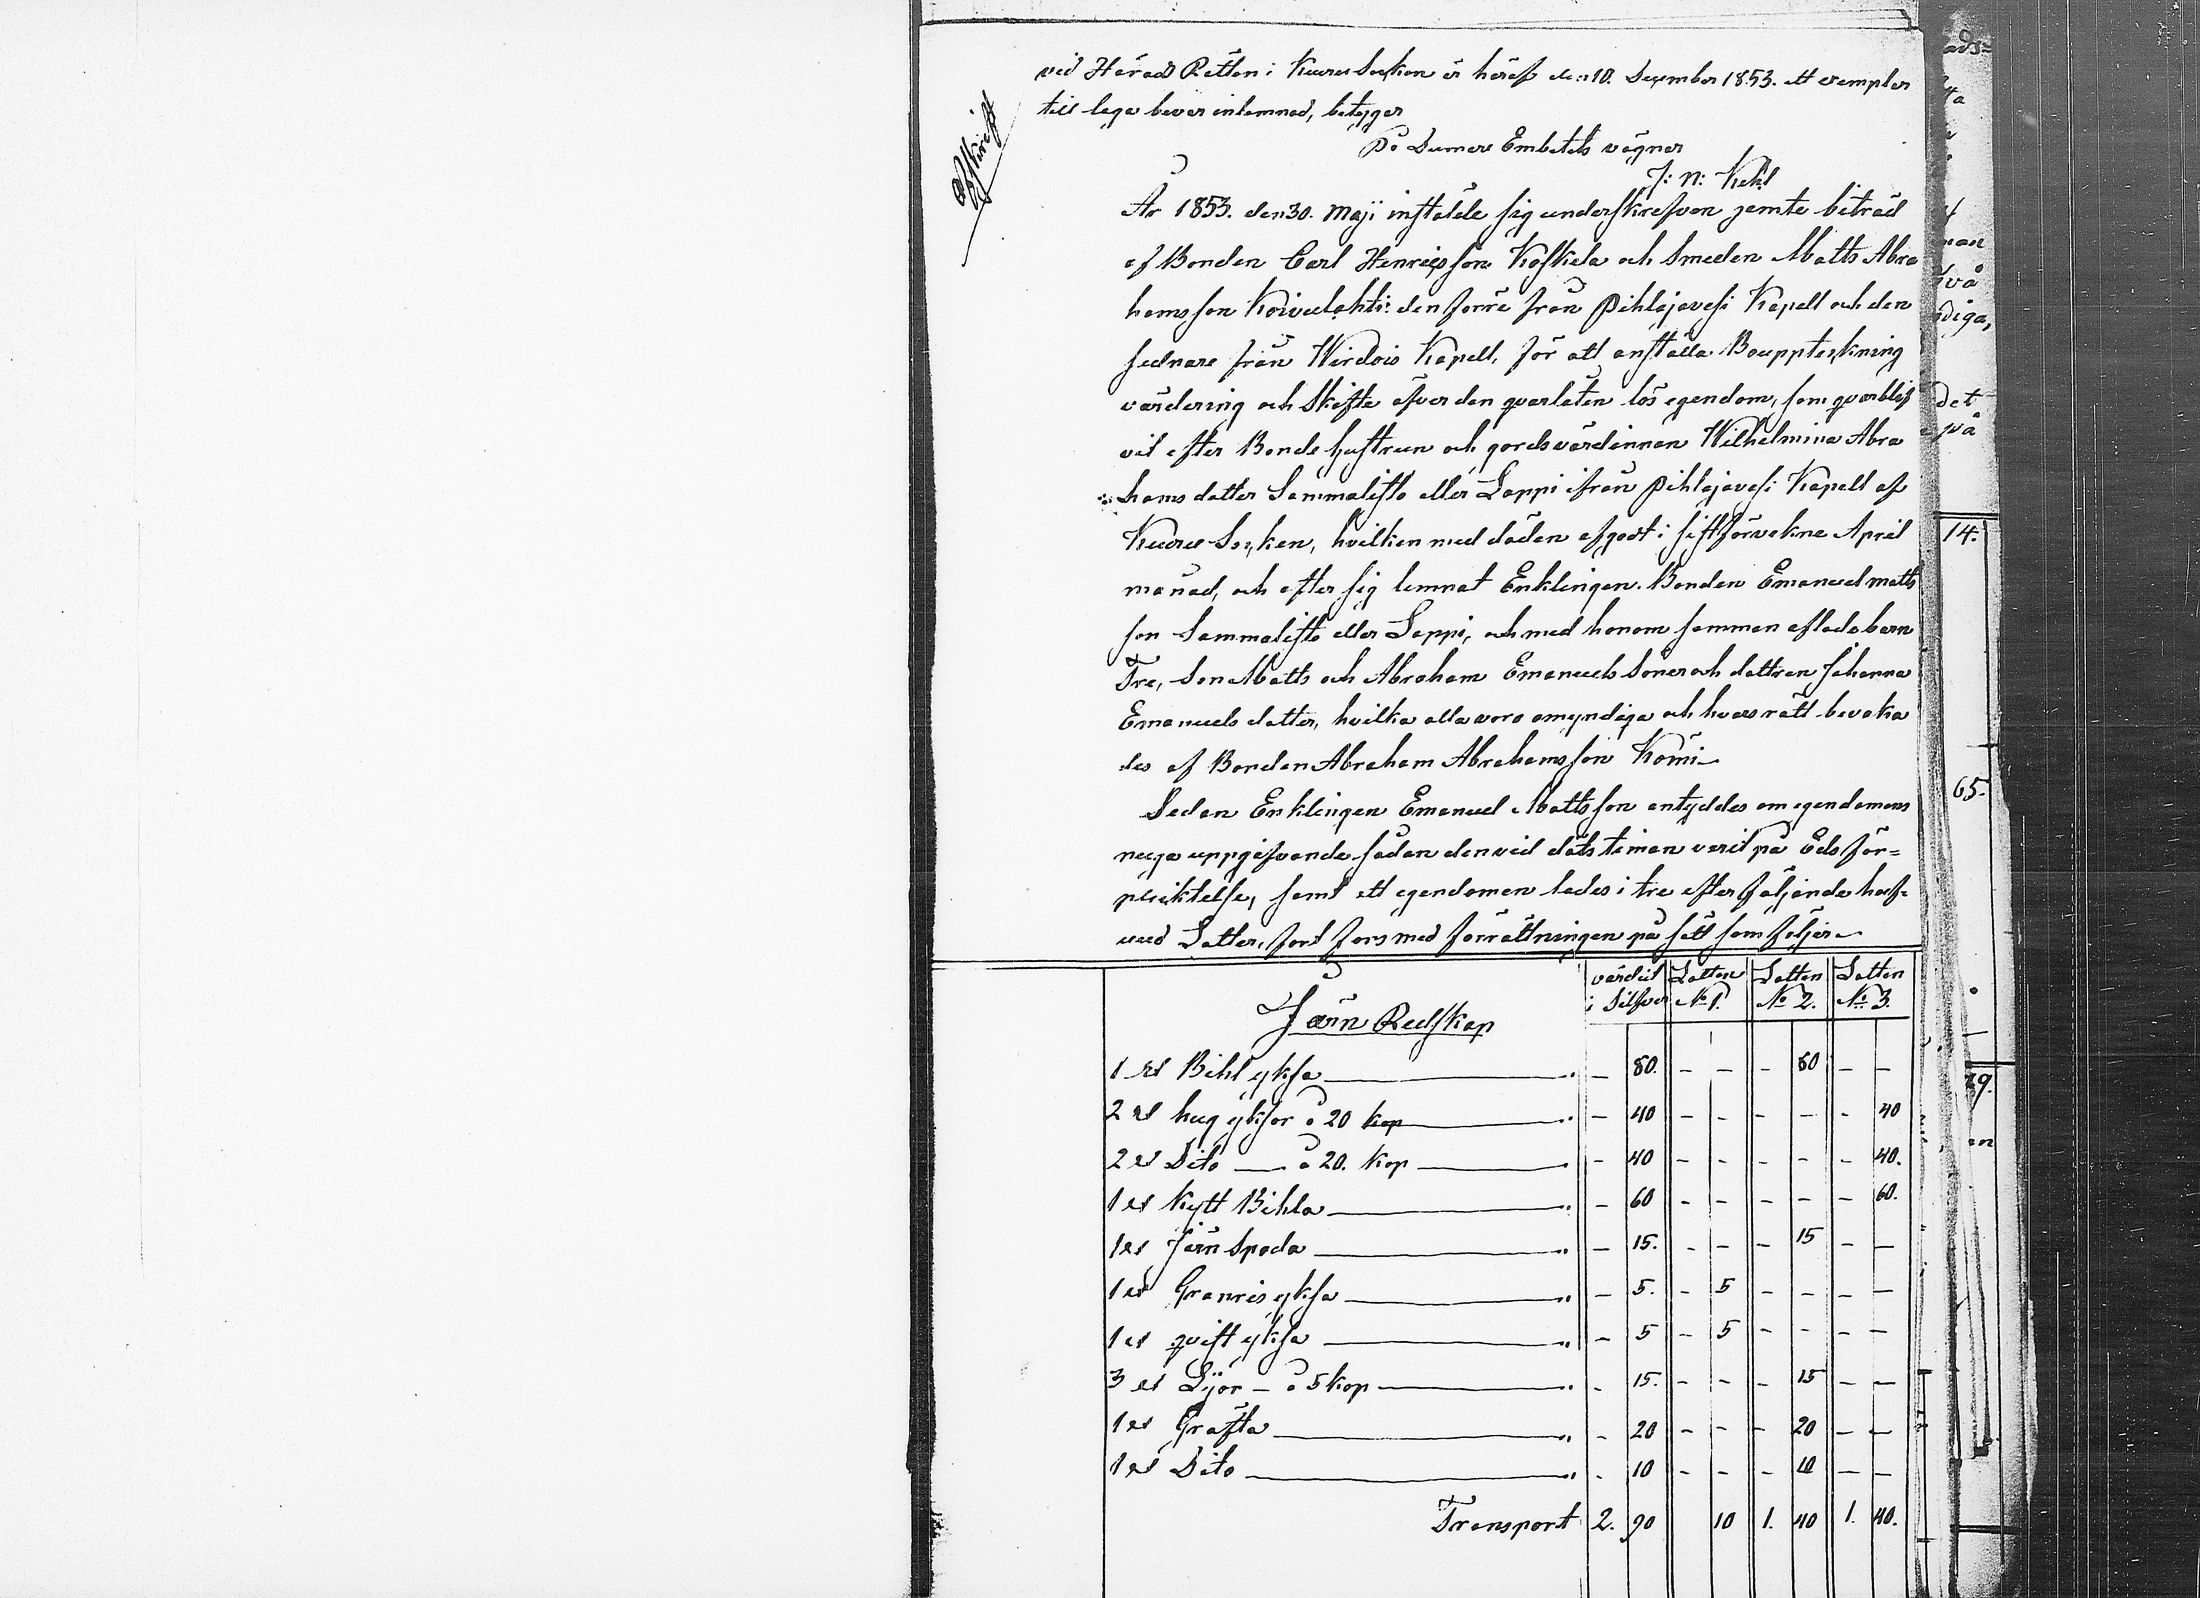 Afskrift
vid Härads Rätten i Kuru Socken är häraf den 10. Desember 1853. ett exemplar
till laga bevar inlemnad, betyger
På Domare Embetets vägnar
J: N: Kihl
År 1853. den 30. Maji instälde sig underskrefven jemte biträd
af Bonden Carl Henricsson Koskela och Smeden Matts Abra
hamsson Koivulahti: den förre från Pihlajavesi Kapell och den
sednare från Wirdois Kapell, för att anställa Bouppteckning
värdering och Skifte öfver den qvarlåten lös egendom, som qvarblif
vit efter Bonde hustrun och gordsvärdinnan Wilhelmina Abra
hams dotter Sammalisto eller Lappi ifrån Pihlajavesi Kapell af
Kuru Socken, hvilken med döden afgott i sistförvekne April
månad, och efter sig lemnat Enklingen Bonden Emanuel Matts
son Sammalisto eller Lappi, och med honom samman aflade barn
Tre, Son Matts och Abraham Emanuels Söner och dottren Johanna
Emanuels dotter, hvilka alla voro omyndiga och hvars rätt bevaka
des af Bonden Abraham Abrahamsson Komi
Sedan Enklingen Emanuel Mattsson antyddes om egendomens
noga uppgifvande sådan den vid döds timan varit på Eds för=
pliktelse, samt ett egendomen lades i tre efter följande huf=
vud Lotter, fort fors med förrättningen på sätt som följer
värdeit i Silfver | Lotten No 1. | Lotten No 2. | Lotten No 3.
Järn Redskap
1 st Bihl yksa — 80. - - - 80 - -
2 st hug yksor a 20 kop — 40 - - - - - 40
2 st Dito — a 20. kop — 40 - - - - - 40.
1 st Kytt Bihla — 60 - - - - - 60.
1 st Järn Spada — 15. - - - 15 - -
1 st Granris yksa — 5. - 5 - - - -
1 st qvist yksa — 5 - 5 - - - -
3 st Lijor - a 5 kop — 15. - - - 15 - -
1 st Gräfta — 20 - - - 20 - -
1 st Dito — 10 - - - 10 - -
Transport 2. 90 10 1. 40 1. 40.
14.
65.
29.